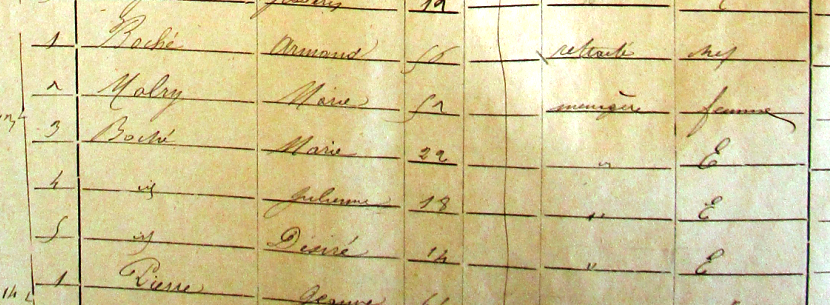 19
1 Boché Armand 56 retraité chef
2 Malry Marie 52 menagère femme
3 Boché Marie 22 " E
4 id Julienne 18 " E
5 id Désiré 14 " E
1 Pierre